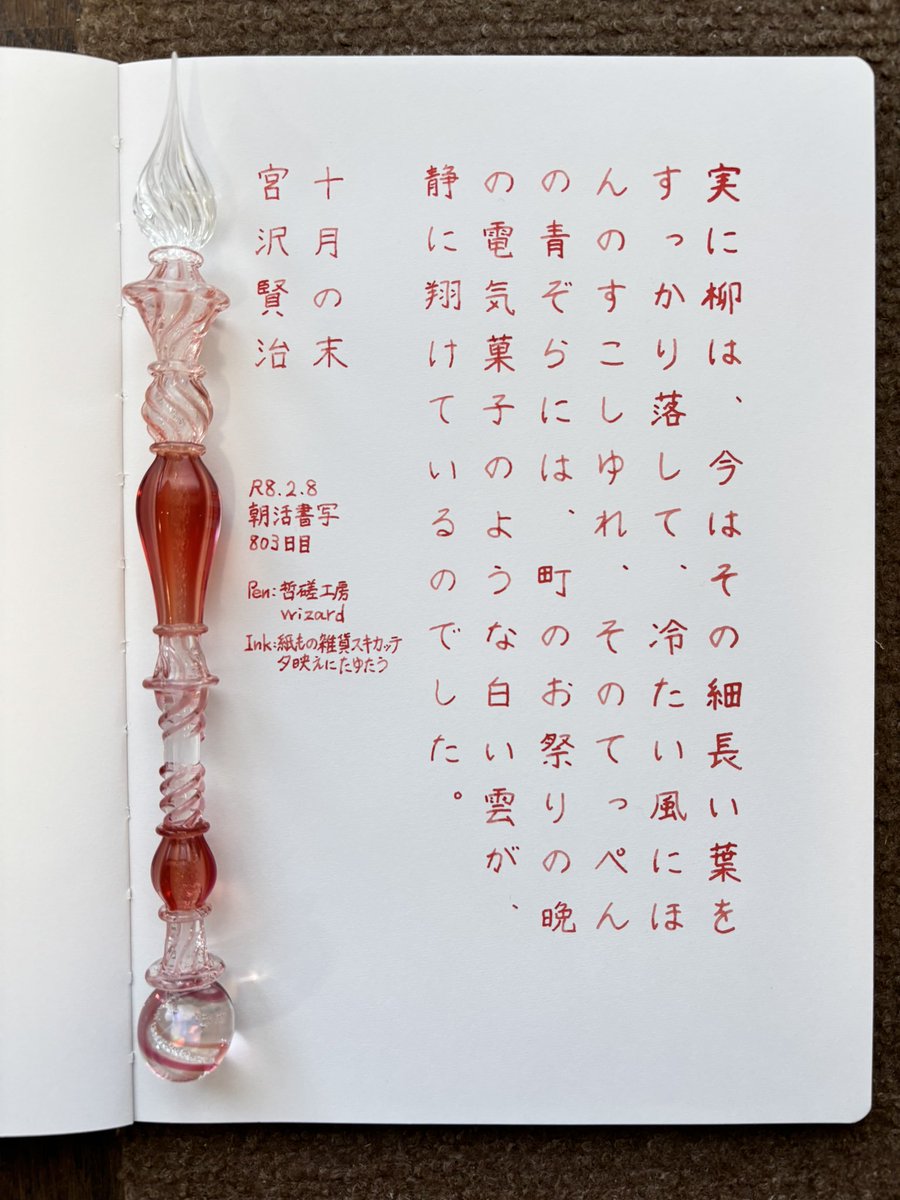 実に柳は、今はその細長い葉を
すっかり落して、冷たい風にほ
んのすこしゆれ、そのてっぺん
の青ぞらには、町のお祭りの晩
の電気菓子のような白い雲が、
静に翔けているのでした。
十月の末
宮沢賢治
R8.2.8
朝活書写
803日目
Pen:哲磋工房
wizard
Ink:紙もの雑貨スキカッテ
夕映えにたゆたう